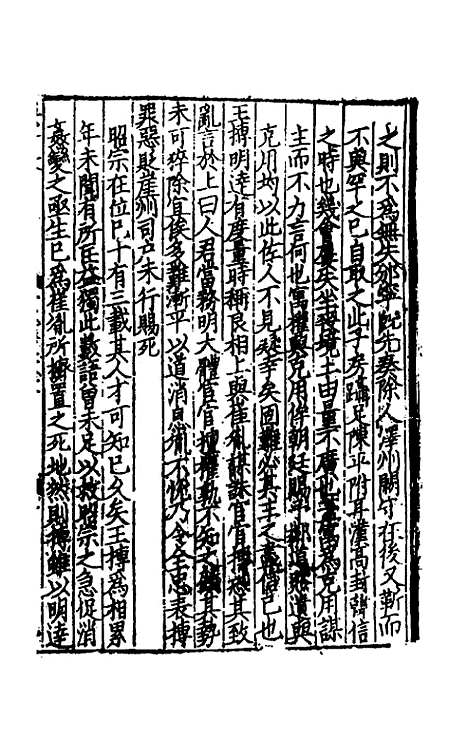 之則不為無失邠寧既先奏除人澤州闕守在後又靳而
不與罕之已自取之此子房躡足陳平附耳漢高封韓信
之時也幾會屢失坐喪境土由量不廣也寓為克用謀
主而不力言何也寓權與克用侔朝廷賜予鄰道贈遺與
克用均以此佐人不見疑幸矣固難必其主之義信已也
王摶明達有度量時稱良相上與崔胤謀誅宦官摶恐其致
亂言於上曰人君當務明大體宦官擅權孰不知之顧其勢
未可猝除宜俟多難漸平以道消息胤不悅令全忠表摶
罪惡貶崖州司戶未行賜死
昭宗在位已十有三載其人才可知已久矣王摶為相累
年未聞有所匡益獨此數語曾未足以救昭宗之急促消
姦變之亟生已為崔胤所擠置之死地然則摶雖以明達